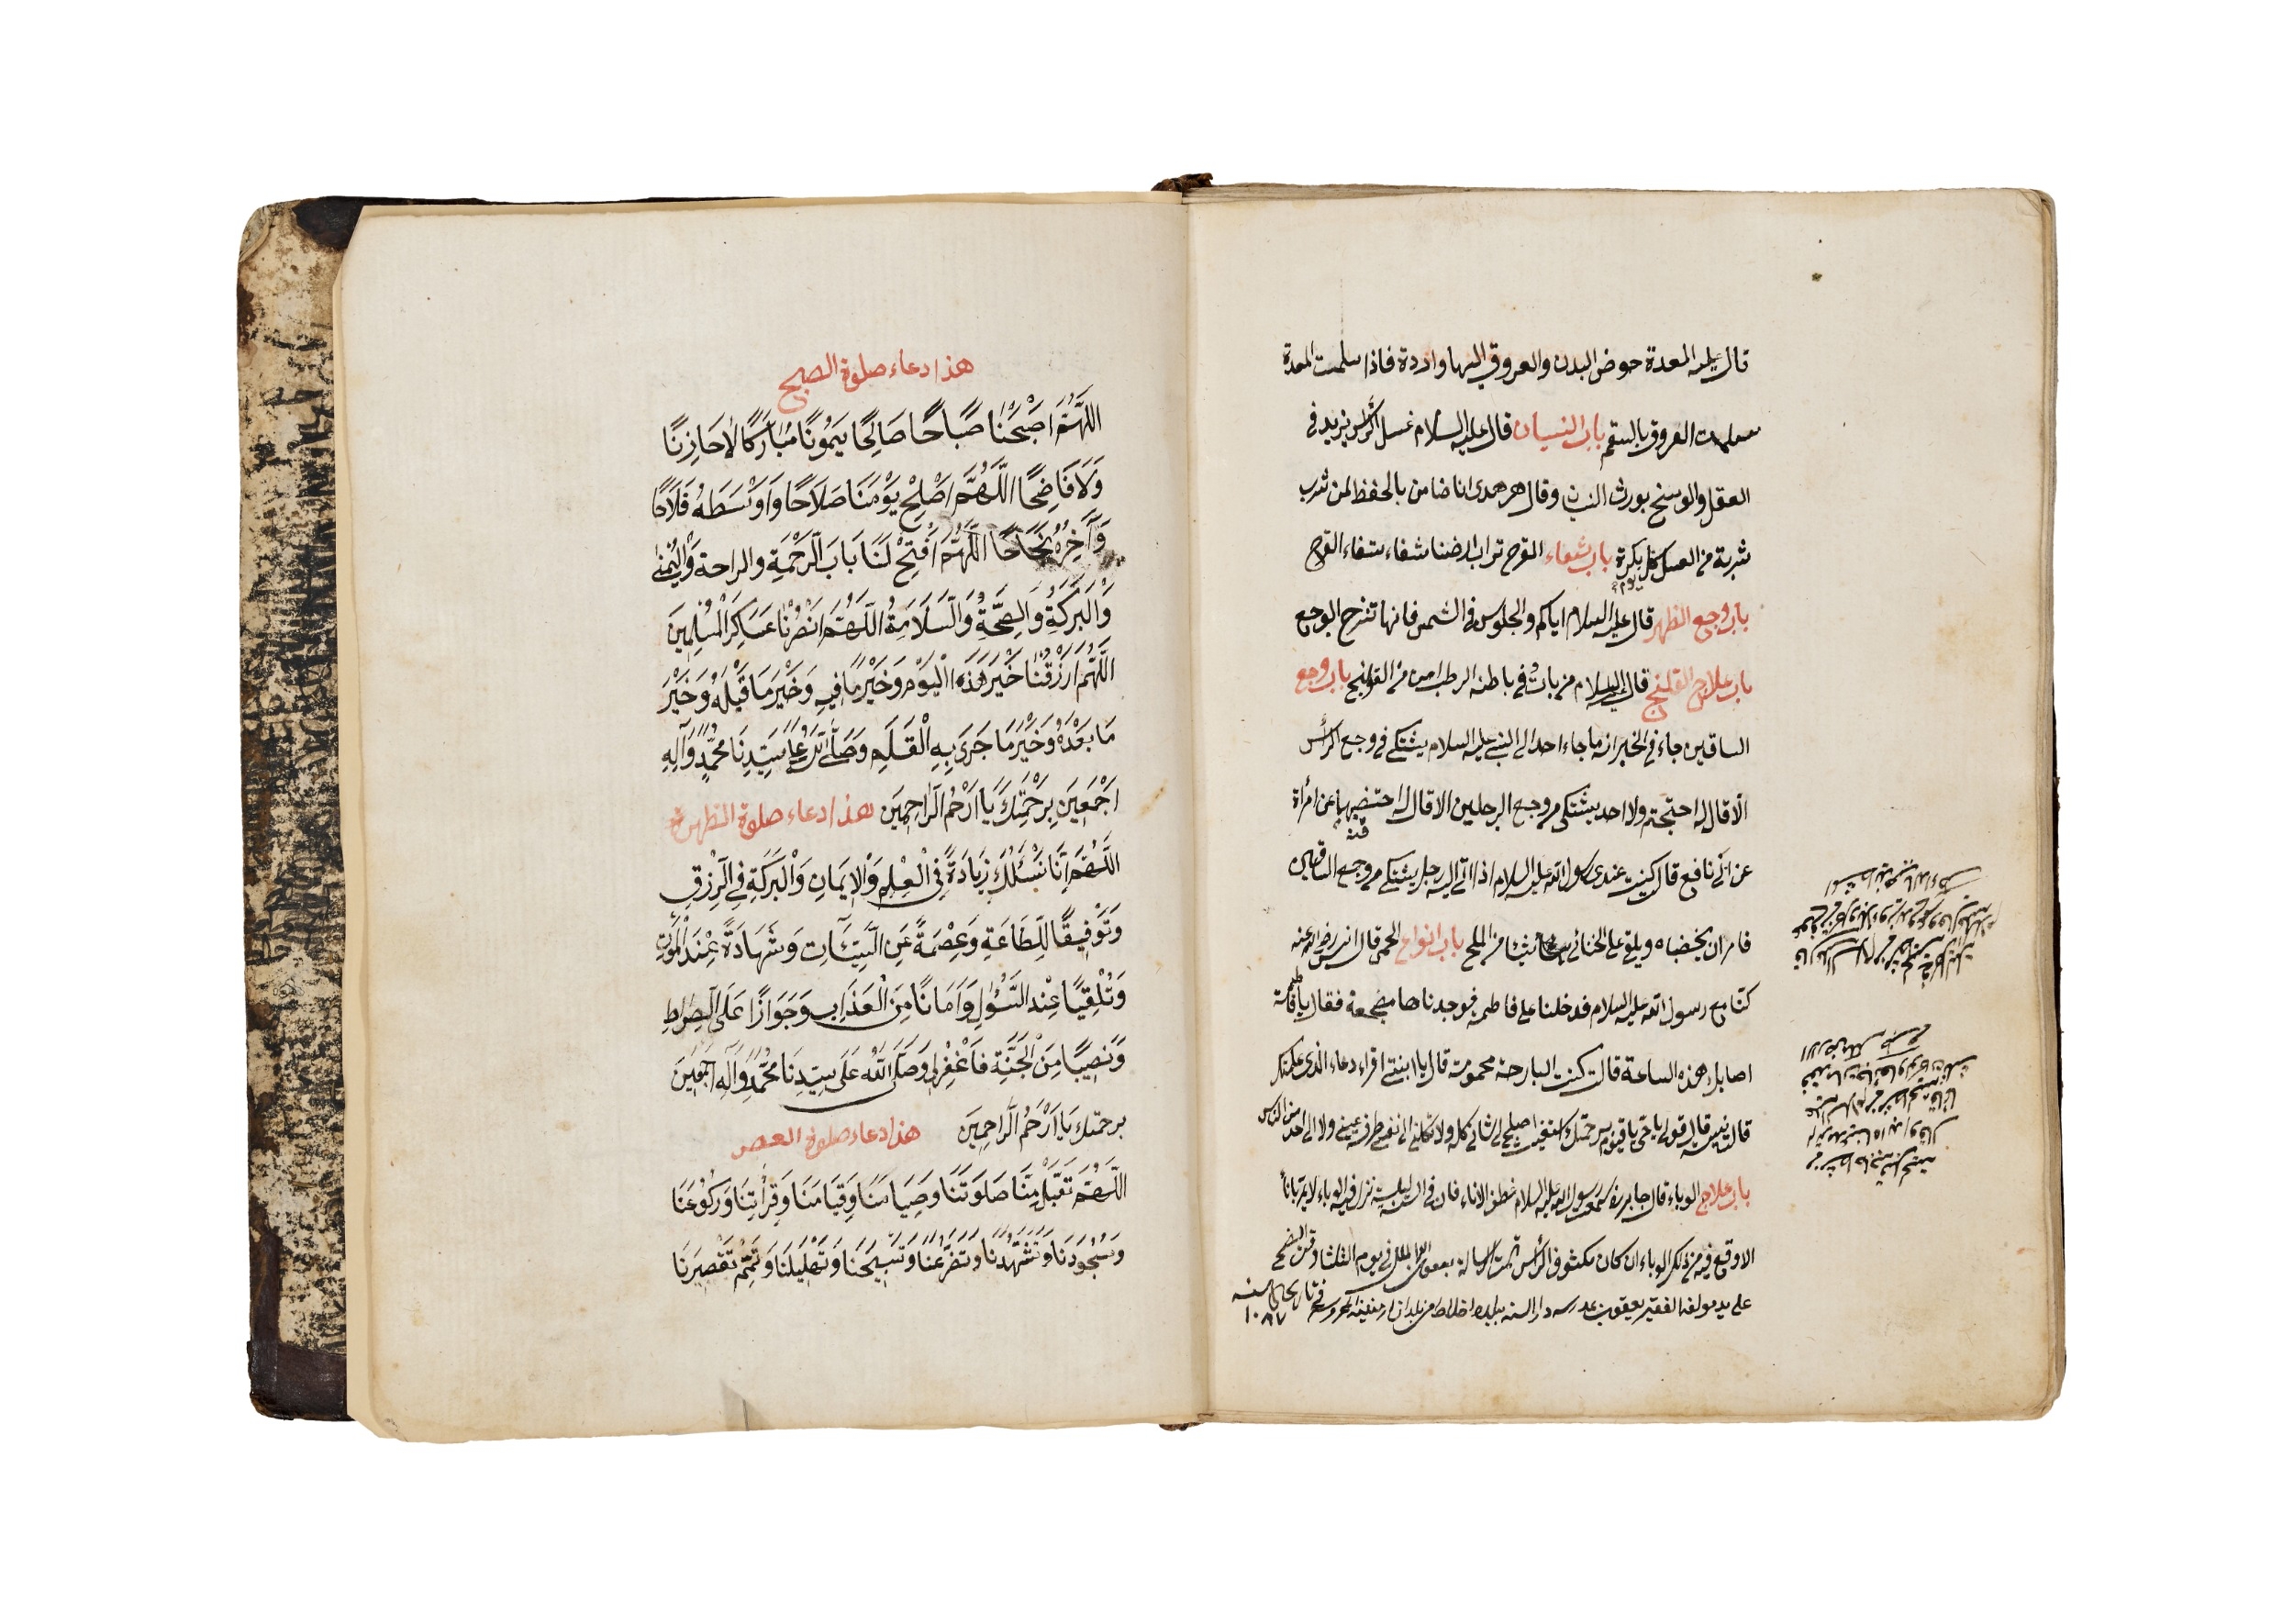 قال عليه المعدة حوض البدن والعروق اليها واردة فاذا سلمت المعدة
العروق بالسقم باب النسيان قال عليه السلام غسل الرأس يزيد في
العقل والوسخ يورث النسيان وقال هدى انا ضامن بالحفظ لمن شرب
شربة من العسل كل بكرة باب شفاء القرح تراب ارضنا شفاء شفاء القرح
باب وجع الظهر قال عليه السلام اياكم والجلوس في الشمس فانها تخرج الوجع
باب علاج القلنج قال عليه السلام من بات في باطنه الرطب امن من القولنج باب وجع
الساقين جاء في الخبر انه ما جاء احد الى النبي عليه السلام يشتكي في وجع الرأس
الا قال له احتجم ولا احد يشتكي من وجع الرجلين الا قال له اختضبهما عن امرأة
عن ابي نافع قال كنت عند رسول الله عليه السلام اذا اتى اليه رجل يشتكي من وجع الساقين
فامر ان يخضباه ويلقى على الحنائي شيئا من الملح باب انواع الحمى قال انس رضي الله عنه
كنا مع رسول الله عليه السلام فدخلنا على فاطمه فوجدناها مضجعة فقال يا فاطمة
اصابك هذه الساعة قالت كنت البارحة محمومة قال يا ابنتي اقراء دعاء الذي علمتك
قالت نسي قال قولي يا حي يا قيوم برحمتك استغيث اصلح لي شاني كله ولا تكلني الى نفسي طرفة عيني ولا الى احد من الناس
باب علاج الوباء قال جابر سمعت رسول الله عليه السلام غطوا الاناء فان في السنة ليلة ينزل فيه الوباء لا يمر باناء
الا وقع فيه من ذلك الوباء ان كان مكشوف الرأس تمت الرسالة بعون الله الملك في يوم الثلثا وقت الضحى
على يد مؤلفه الفقير يعقوب بمدرسه دار السنه ببلده اخلاط من بلدان ارمنيه المحروسة في تاريخ سنه
١٠٨٧
هذا دعاء صلوة الصبح
اَللّٰهُمَّ اَصْبَحْنَا صَبَاحًا صَالِحًا يَمُونًا مُبَارَكًا لَا حَازِنًا
وَلَا فَاضِحًا اَللّٰهُمَّ اَصْلِحْ يَوْمَنَا صَلَاحًا وَاَوْسَطَهُ فَلَاحًا
وَآخِرُهُ نَجَاحًا اَللّٰهُمَّ اَفْتِحْ لَنَا بَابَ الرَّحْمَةِ والراحة وَالْيُمْنِ
وَالْبَرَكَةِ وَالصِّحَّةِ وَالسَّلَامَةِ اَللّٰهُمَّ انْصُرْنَا عَسَاكِرَ الْمُسْلِمِينَ
اَللّٰهُمَّ ارْزُقْنَا خَيْرَ هَذَا الْيَوْمِ وَخَيْرَ مَا فِيهِ وَخَيْرَ مَا قَبْلَهُ وَخَيْرَ
مَا بَعْدَهُ وَخَيْرَ مَا جَرَى بِهِ الْقَلَمِ وَصَلَّى اللّٰهُ عَلَى سَيِّدِنَا مُحَمَّدٍ وَآلِهِ
اَجْمَعِينَ بِرَحْمَتِكَ يَا اَرْحَمَ الرَّاحِمِينَ هذا دعاء صلوة الظهر
اَللّٰهُمَّ اِنَّا نَسْئَلُكَ زِيَادَةً فِي الْعِلْمِ وَالْاِيمَانِ وَالْبَرَكَةِ فِي الرِّزْقِ
وَتَوْفِيقًا لِلطَّاعَةِ وَعِصْمَةً عَنِ السَّيِّئَاتِ وَشَهَادَةً عِنْدَ الْمَوْتِ
وَتُلْقِيًا عِنْدَ السُّؤَالِ وَاَمَانًا مِنَ الْعَذَابِ وَجَوَازًا عَلَى الصِّرَاطِ
وَنَصِيبًا مِنَ الْجَنَّةِ فَاغْفِرْلِي وَصَلَّى اللّٰهُ عَلَى سَيِّدِنَا مُحَمَّدٍ وَآلِهِ اَجْمَعِينَ
برحمتك يَا اَرْحَمَ الرَّاحِمِينَ هذا دعاء صلوة العصر
اَللّٰهُمَّ تَقَبَّلْ مِنَّا صَلَوتَنَا وَصِيَامَنَا وَقِيَامَنَا وَقِرْاَتِنَا وَرَكُوعَنَا
وَسُجُودَنَا وَتَشَهُّدَنَا وَتَضَرُّعَنَا وَتَسْبِيحَنَا وَتَهْلِيلَنَا وَتَمِّمْ تَقْصِيرَنَا